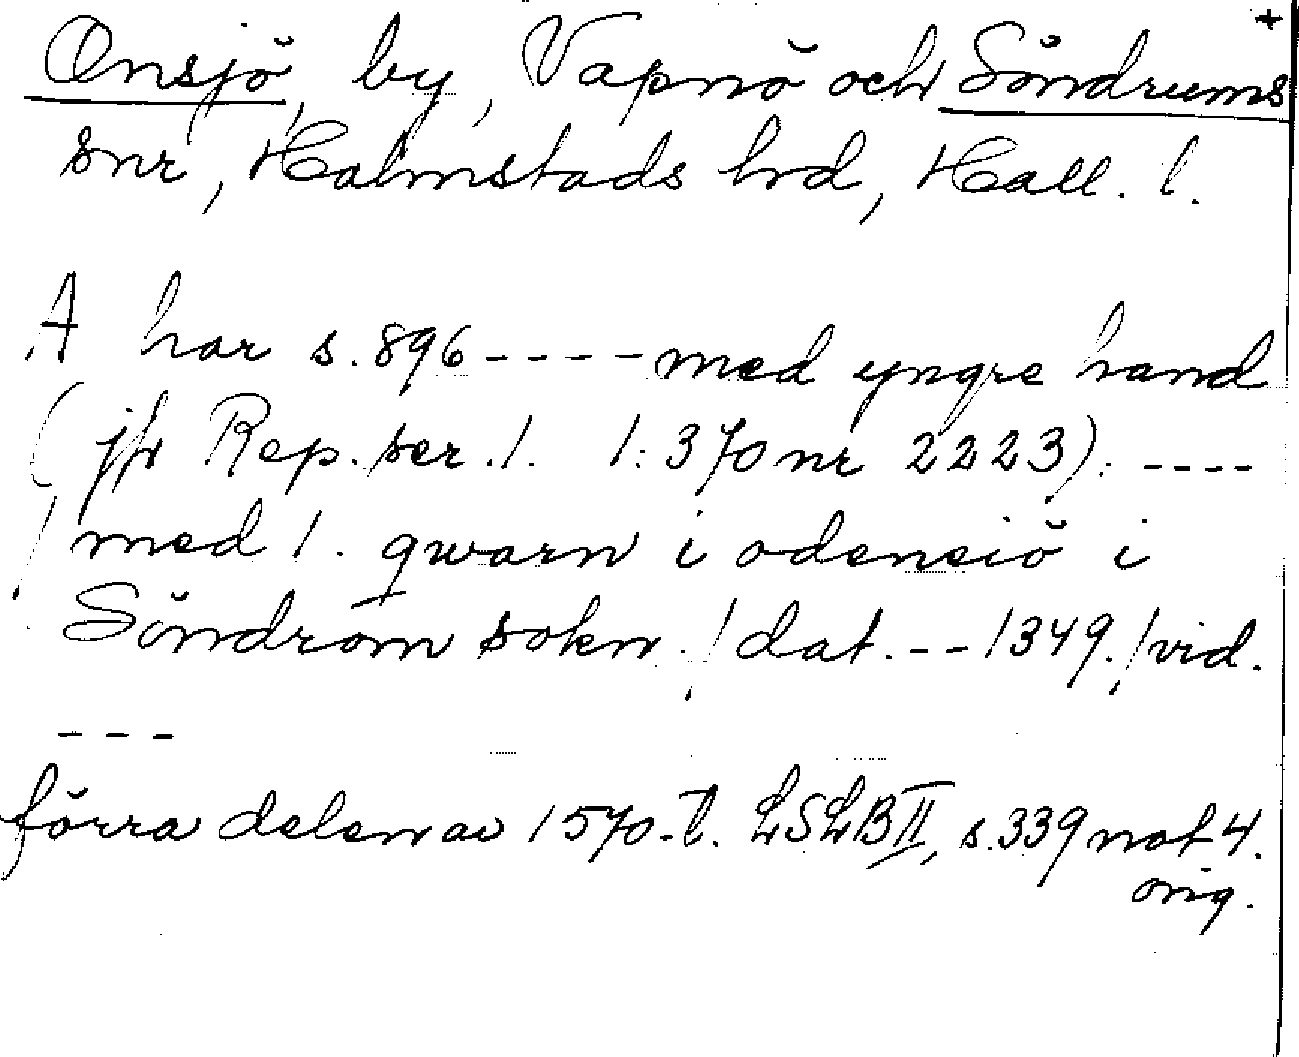 +
Onsjö, by, Vapnö och Söndrums
snr, Halmstads hrd, Hall. l.
A har s. 896 - - - - med yngre hand
(jfr Rep. ser. 1. 1: 370 nr 2223): - - - -
/med 1. qwarn i odensiö i
Söndrom sokn. /dat. - - 1349. /vid.
- - -
förra delen av 1570-t. LSLB II, s. 339 not 4.
orig.